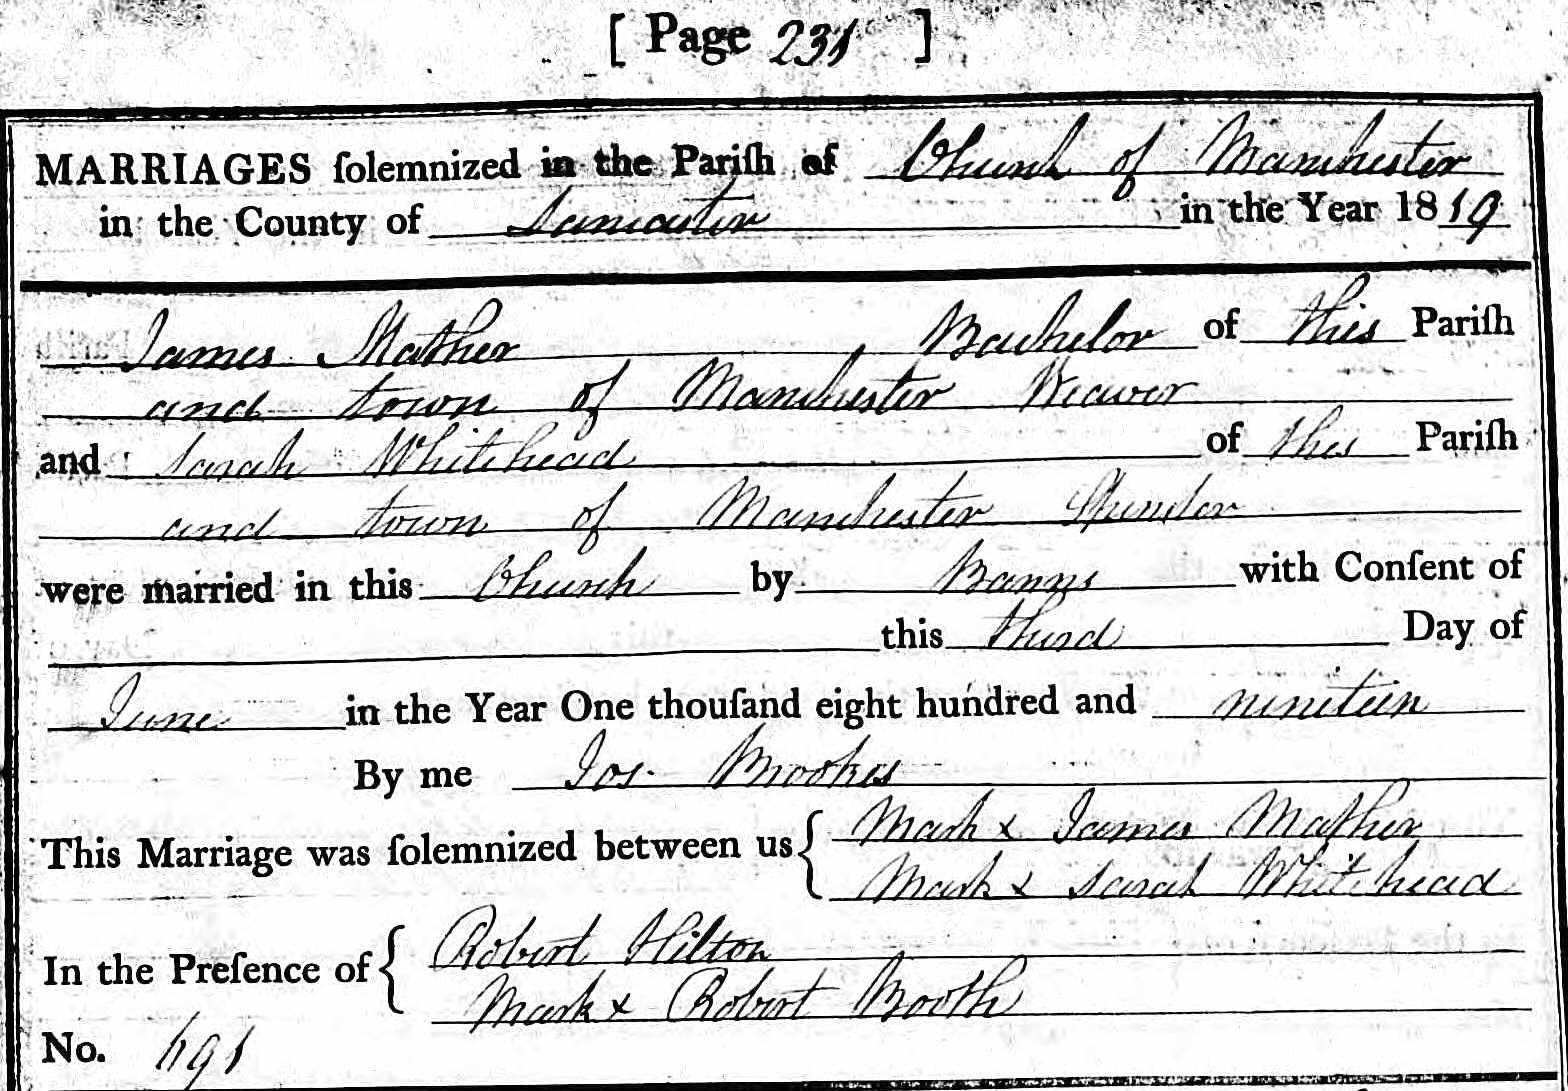 [ Page 231 ]
MARRIAGES ſolemnized in the Pariſh of Church of Manchester
in the County of Lancaster in the Year 1819
James Mather Bachelor of this Pariſh
and town of Manchester Weaver
and Sarah Whitehead of this Pariſh
and town of Manchester Spinster
were married in this Church by Banns with Conſent of
this third Day of
June in the Year One thouſand eight hundred and nineteen
By me Jos. Brookes
This Marriage was ſolemnized between us { Mark x James Mather
Mark x Sarah Whitehead
In the Preſence of { Robert Hilton
Mark x Robert Booth
No. 691